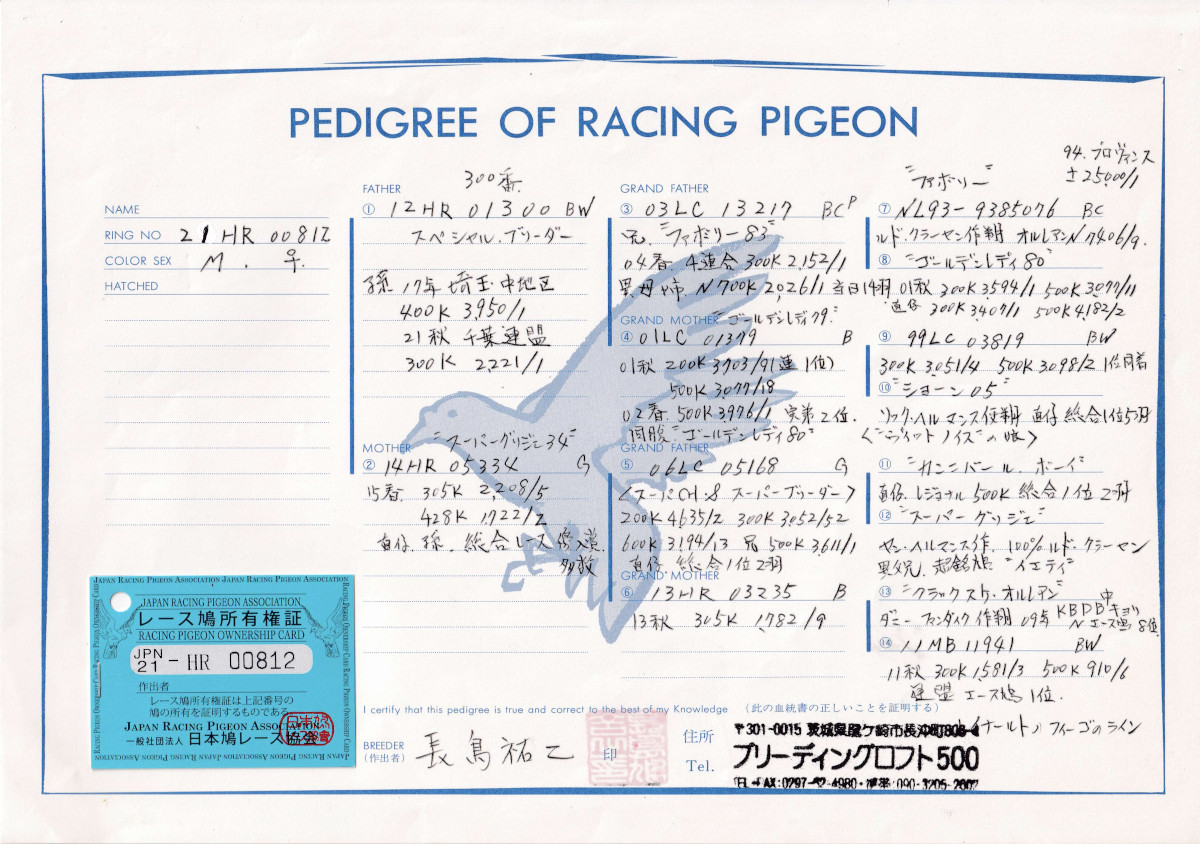 PEDIGREE OF RACING PIGEON
NAME
RING NO 21 HR 00812
COLOR SEX M . ♀.
HATCHED
FATHER 300番
① 12HR 01300 BW
スペシャル・ブリーダー
孫 17年 埼玉中地区
400K 3,950/1
21秋 千葉連盟
300K 2,221/1
MOTHER "スーパーグリジェ34"
② 14HR 05334 G
15春. 305K 2,208/5
428K 1,722/2
直仔. 孫. 総合レース
多数
GRAND FATHER
③ 03LC 13217 BCP
兄. "ファボリー83"
04春. 4連合 300K 2,152/1
異母姉. N700K 2,026/1 当日14羽
GRAND MOTHER "ゴールデンレディ79"
④ 01LC 01379 B
01秋 200K 3703/91(連1位)
500K 3,077/18
02春. 500K 3,976/1 実第2位.
同腹 "ゴールデンレディ80"
GRAND FATHER
⑤ 06LC 05168 G
〈スーパCH.8 スーパーブリーダー〉
200K 4635/2 300K 3052/52
600K 3,194/13 兄 500K 3,611/1
直仔 総合1位2羽
GRAND MOTHER
⑥ 13HR 03235 B
13秋 305K 1,782/9
94. プロヴァンス
"ファボリー" ± 25,000/1
⑦ NL93-9385076 BC
ルド・クラーセン作翔 オルレアンN7406/9.
⑧ "ゴールデンレディ80"
01秋 300K 3594/1 500K 3,077/11
直仔 300K 3,407/1 500K 4182/2
⑨ 99LC 03819 BW
300K 3,051/4 500K 3,098/2 1位同着
⑩ "ジョーン05"
リック・ヘルマンス使翔 直仔 総合1位5羽
⑪ "カンニバール・ボーイ"
直仔. レジョナル500K 総合1位2羽
⑫ "スーパーグリジェ"
ヤン・ヘルマンス作. 100%ルド・クラーセン
異父兄. "イエティ"
⑬ "クラックスケ・オルレアン"
ダニー・ファンダイク作翔 09年 KBDB 中キョリ
Nエース鳩8位.
⑭ 11MB 11941 BW
11秋 300K 1581/3 500K 910/6
連盟 エース鳩 1位.
フィーゴのライン
JAPAN RACING PIGEON ASSOCIATION
レース鳩所有権証
RACING PIGEON OWNERSHIP CARD
JPN 21 - HR 00812
作出者
レース鳩所有権証は上記番号の
鳩の所有を証明するものである
JAPAN RACING PIGEON ASSOCIATION
一般社団法人 日本鳩レース協会
I certify that this pedigree is true and correct to the best of my Knowledge (此の血統書の正しいことを証明する)
BREEDER
(作出者) 長島祐二 印
住所 〒301-0015 茨城県龍ケ崎市長沖町808-4
ブリーディングロフト500
Tel. TEL・FAX:0297-62-4980・携帯:090-3205-2607